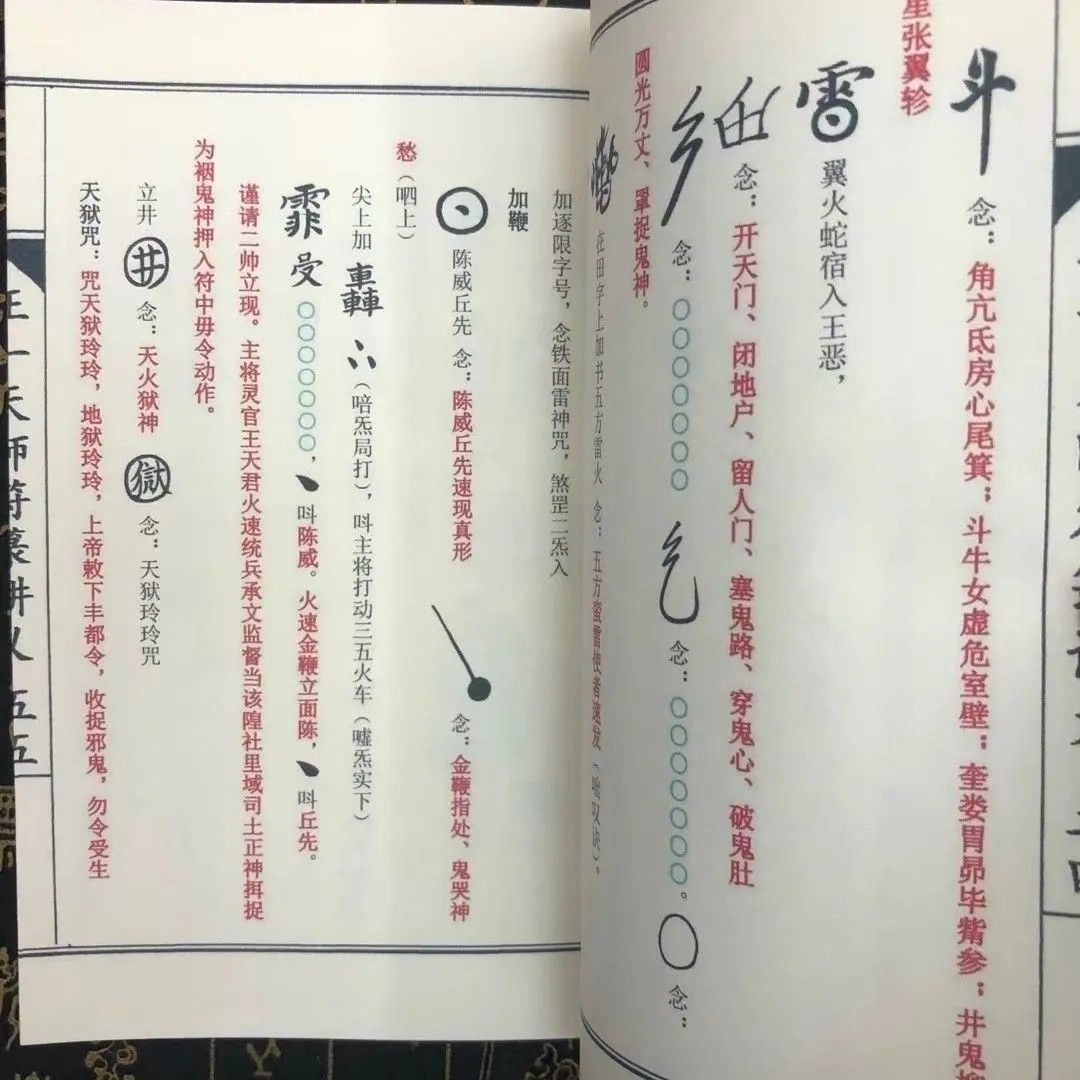 斗 念：角亢氐房心尾箕；斗牛女虚危室壁；奎娄胃昴毕觜参；井鬼柳
星张翼轸
翼火蛇宿入王恶，
念：开天门、闭地户、留人门、塞鬼路、穿鬼心、破鬼肚
念：○○○○○○○ 念：○○○○○○○。○ 念：
圆光万丈、罩捉鬼神。
在田字上加书五方雷火 念：五方蛮雷使者速发
加逐限字号，念铁面雷神咒，煞罡二炁入
加鞭
陈威丘先 念：陈威丘先速现真形 念：金鞭指处、鬼哭神
愁（呬上）
尖上加 轰 （唵炁局打），呌主将打动三五火车（嘘炁实下）
霏 受 ○○○○○○○，丶呌陈威。火速金鞭立面陈，丶呌丘先。
谨请二帅立现。主将灵官王天君火速统兵承文监督当该隍社里域司土正神挕捉
为祸鬼神押入符中毋令动作。
立井 井 念：天火狱神 獄 念：天狱玲玲咒
天狱咒：咒天狱玲玲，地狱玲玲，上帝敕下丰都令，收捉邪鬼，勿令受生
正一天师符箓讲义 五五